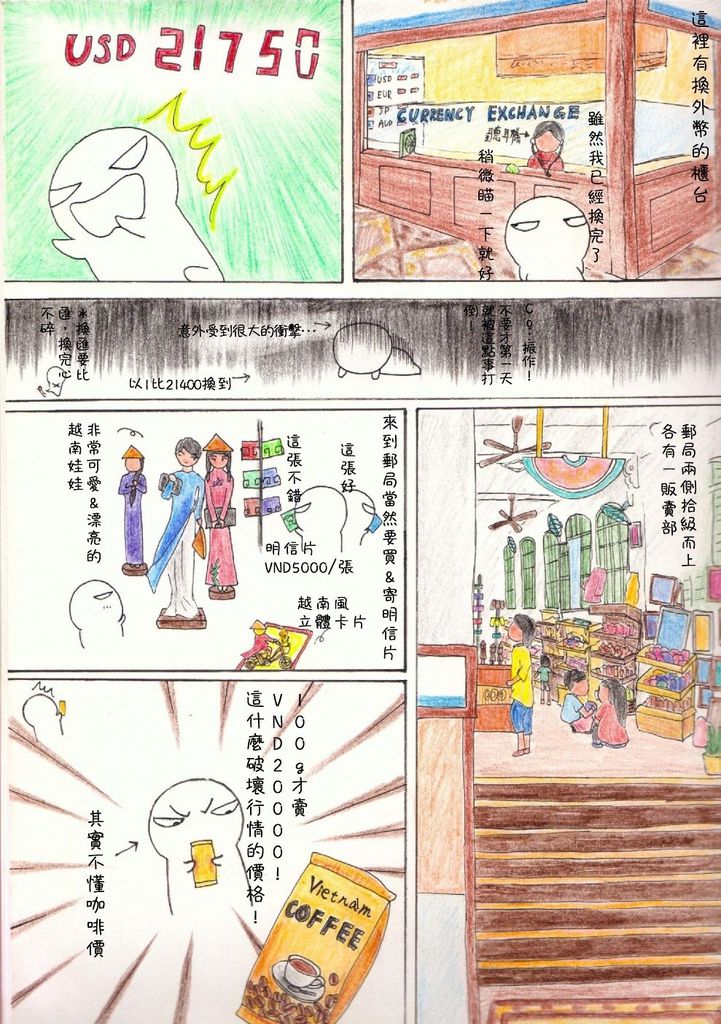 這裡有換外幣的櫃台
雖然我已經換完了
稍微瞄一下就好
聽耳機
CURRENCY EXCHANGE
USD
EUR
JP
AUD
USD 21750
Co:振作!
不要才第一天
就被這點事打
倒!
意外受到很大的衝擊…
以1比21400換到
*換匯要比
匯,換完心
不碎
郵局兩側拾級而上
各有一販賣部
來到郵局當然要買&寄明信片
這張好
這張不錯
明信片
VND5000/張
越南風
立體卡片
非常可愛&漂亮的
越南娃娃
100g才賣
VND20000!
這什麼破壞行情的價格!
其實不懂咖啡價
Vietnam
COFFEE